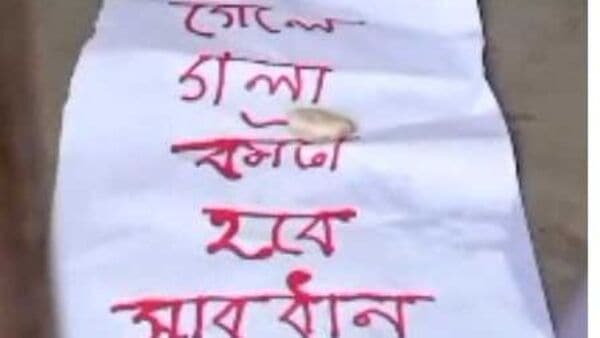 গেলে
গলা
কাটা
হবে
সাবধান